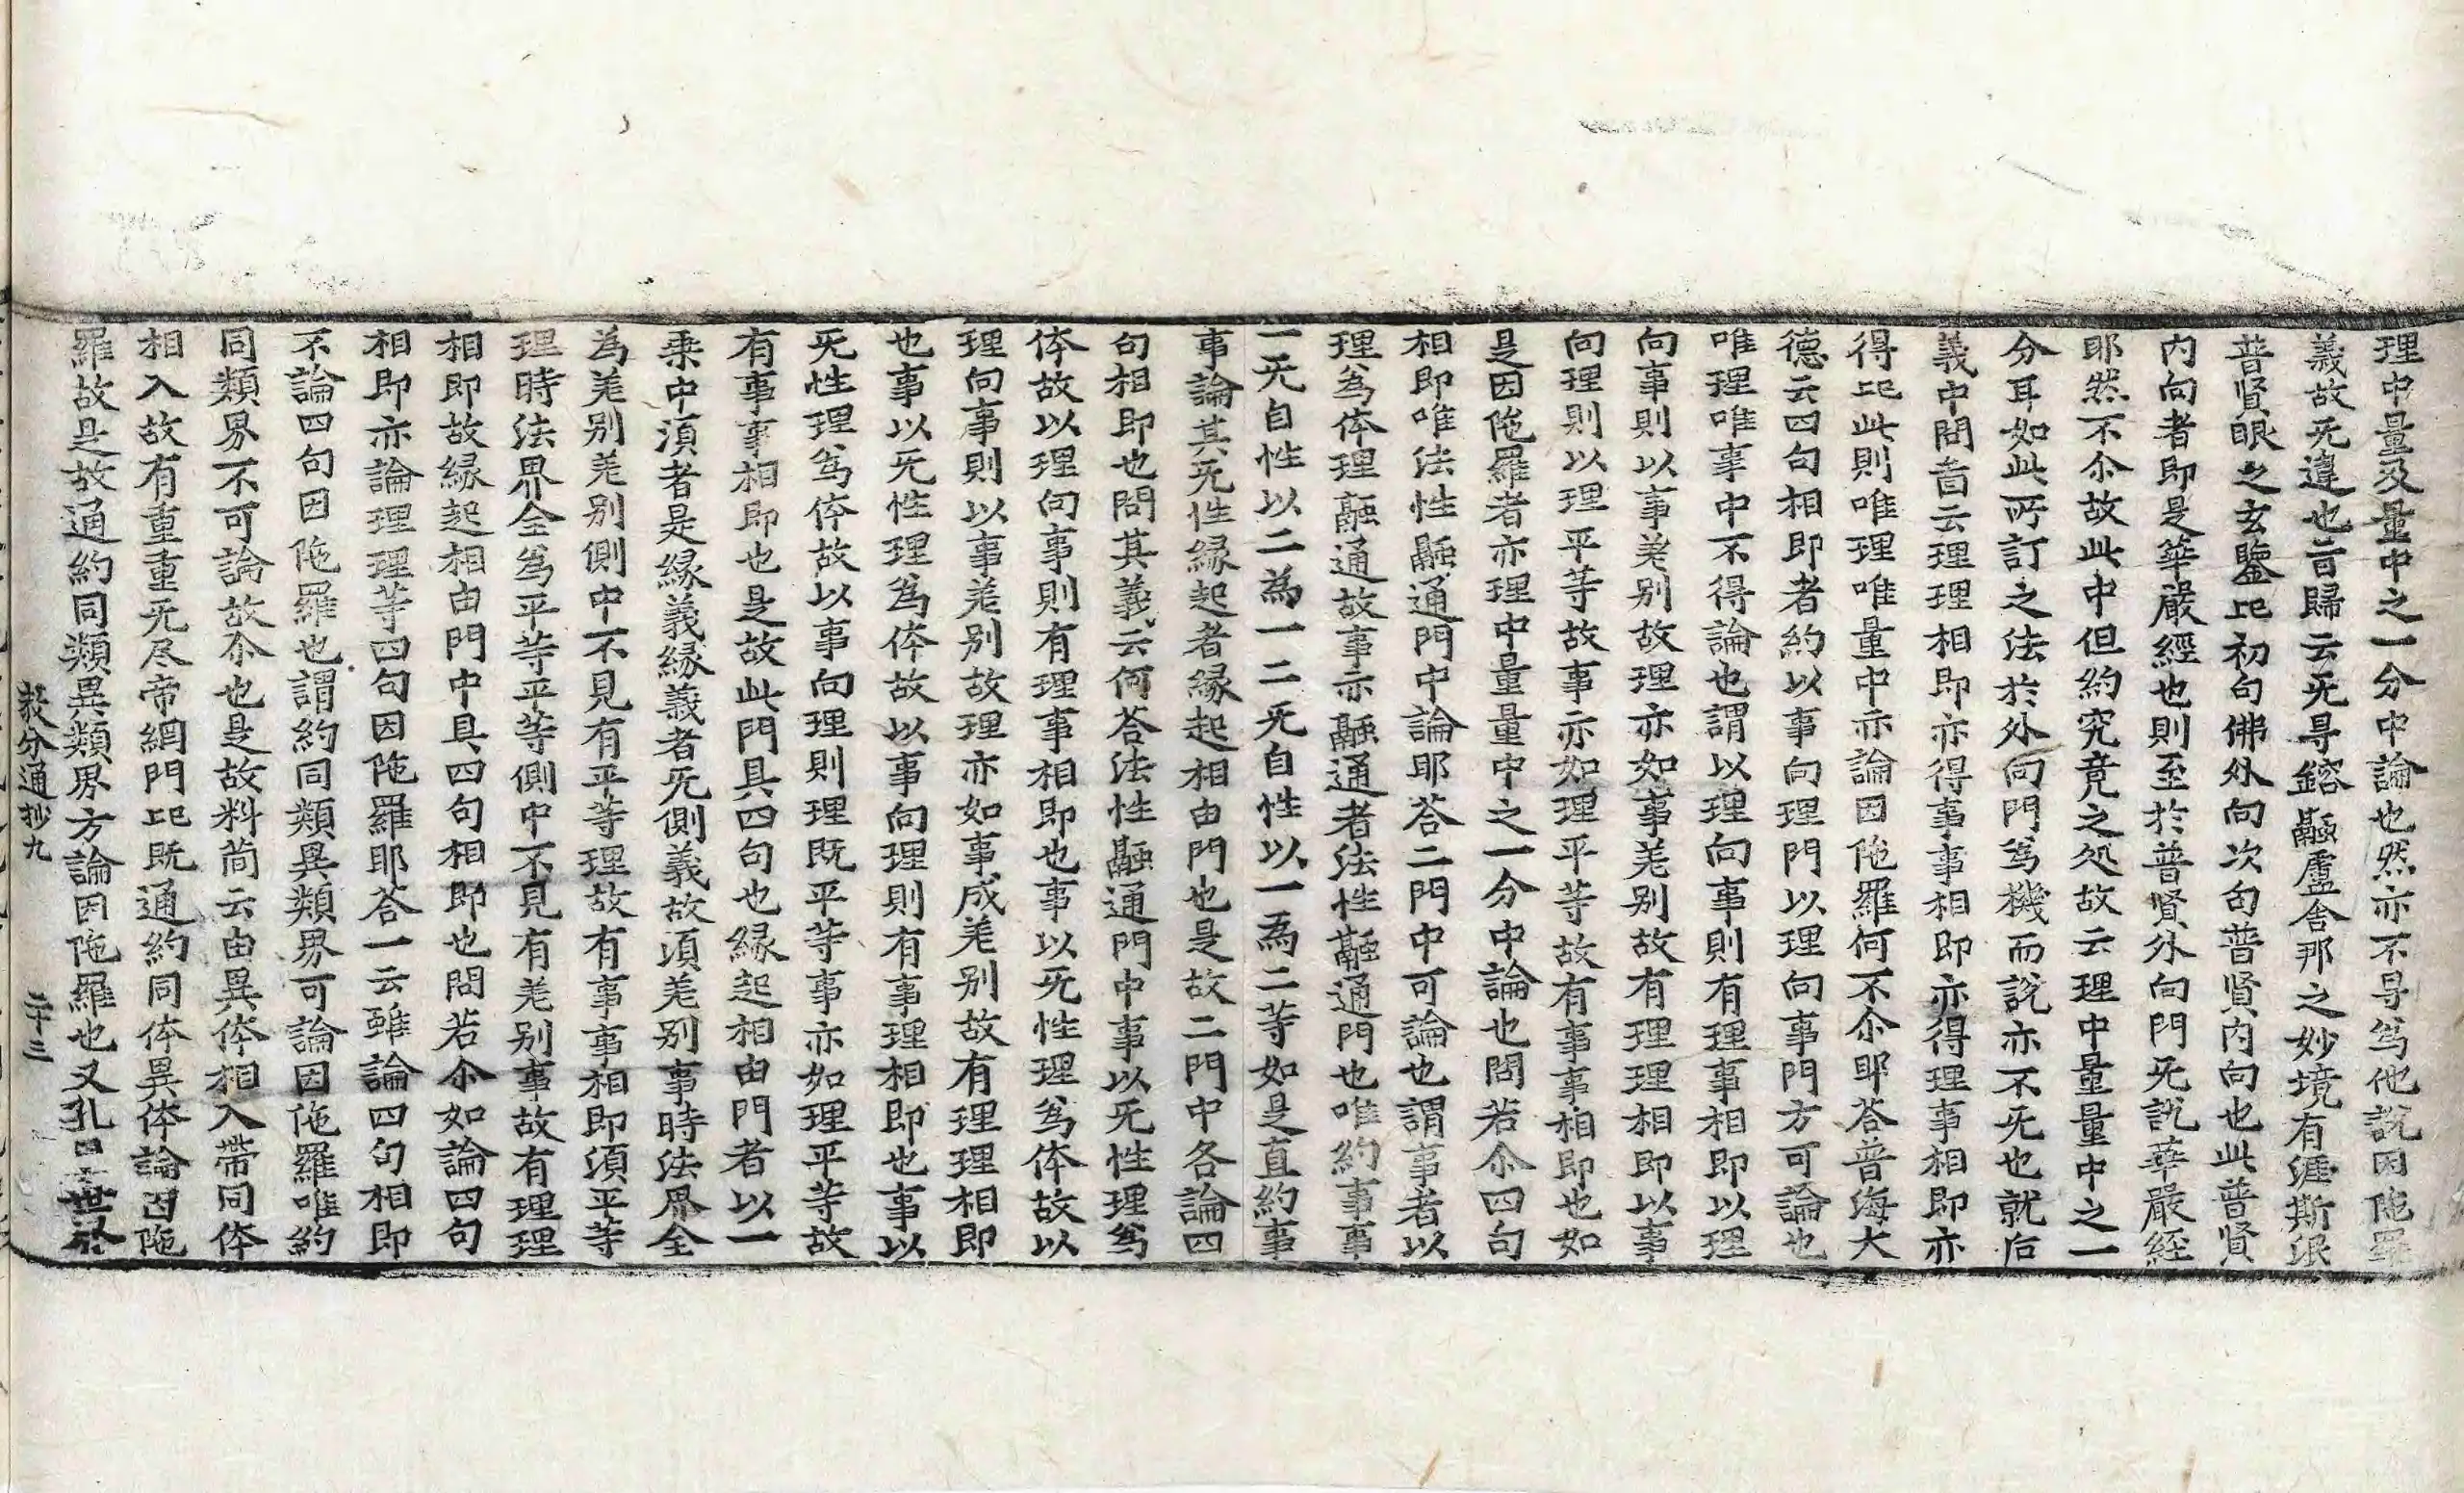 理中量及量中之一分中論也然亦不㝵為他說因陁羅
義故无違也旨歸云无㝵鎔融盧舎那之妙境有涯斯泯
普賢眼之玄鑒此初句佛外向次句普賢内向也此普賢
内向者即是華嚴經也則至於普賢外向門无說華嚴經
耶然不尒故此中但約究竟之処故云理中量量中之一
分耳如此所訂之法於外向門為機而說亦不无也就后
義中問旨云理理相即亦得事事相即亦得理事相即亦
得此則唯理唯量中亦論因陁羅何不尒耶荅普海大
德云四句相即者約以事向理門以理向事門方可論也
唯理唯事中不得論也謂以理向事則有理事相即以理
向事則以事差别故理亦如事差别故有理理相即以事
向理則以理平等故事亦如理平等故有事事相即也如
是因陁羅者亦理中量量中之一分中論也問若尒四句
相即唯法性融通門中論耶荅二門中可論也謂事者以
理為体理融通故事亦融通者法性融通門也唯約事事
一无自性以二為一二无自性以一為二等如是直約事
事論其无性縁起者縁起相由門也是故二門中各論四
句相即也問其義云何荅法性融通門中事以无性理為
体故以理向事則有理事相即也事以无性理為体故以
理向事則以事差别故理亦如事成差别故有理理相即
也事以无性理為体故以事向理則有事理相即也事以
无性理為体故以事向理則理既平等事亦如理平等故
有事事相即也是故此門具四句也縁起相由門者以一
乗中湏者是縁義縁義者无側義故湏差别事時法界全
為差别差别側中不見有平等理故有事事相即湏平等
理時法界全為平等平等側中不見有差别事故有理理
相即故縁起相由門中具四句相即也問若尒如論四句
相即亦論理理等四句因陁羅耶荅一云雖論四句相即
不論四句因陁羅也謂約同類異類界可論因陁羅唯約
同類界不可論故尒也是故料簡云由異体相入帯同体
相入故有重重无尽帝網門此既通約同体異体論因陁
羅故是故通約同類異類界方論因陁羅也又孔目
教分通抄九
二十三